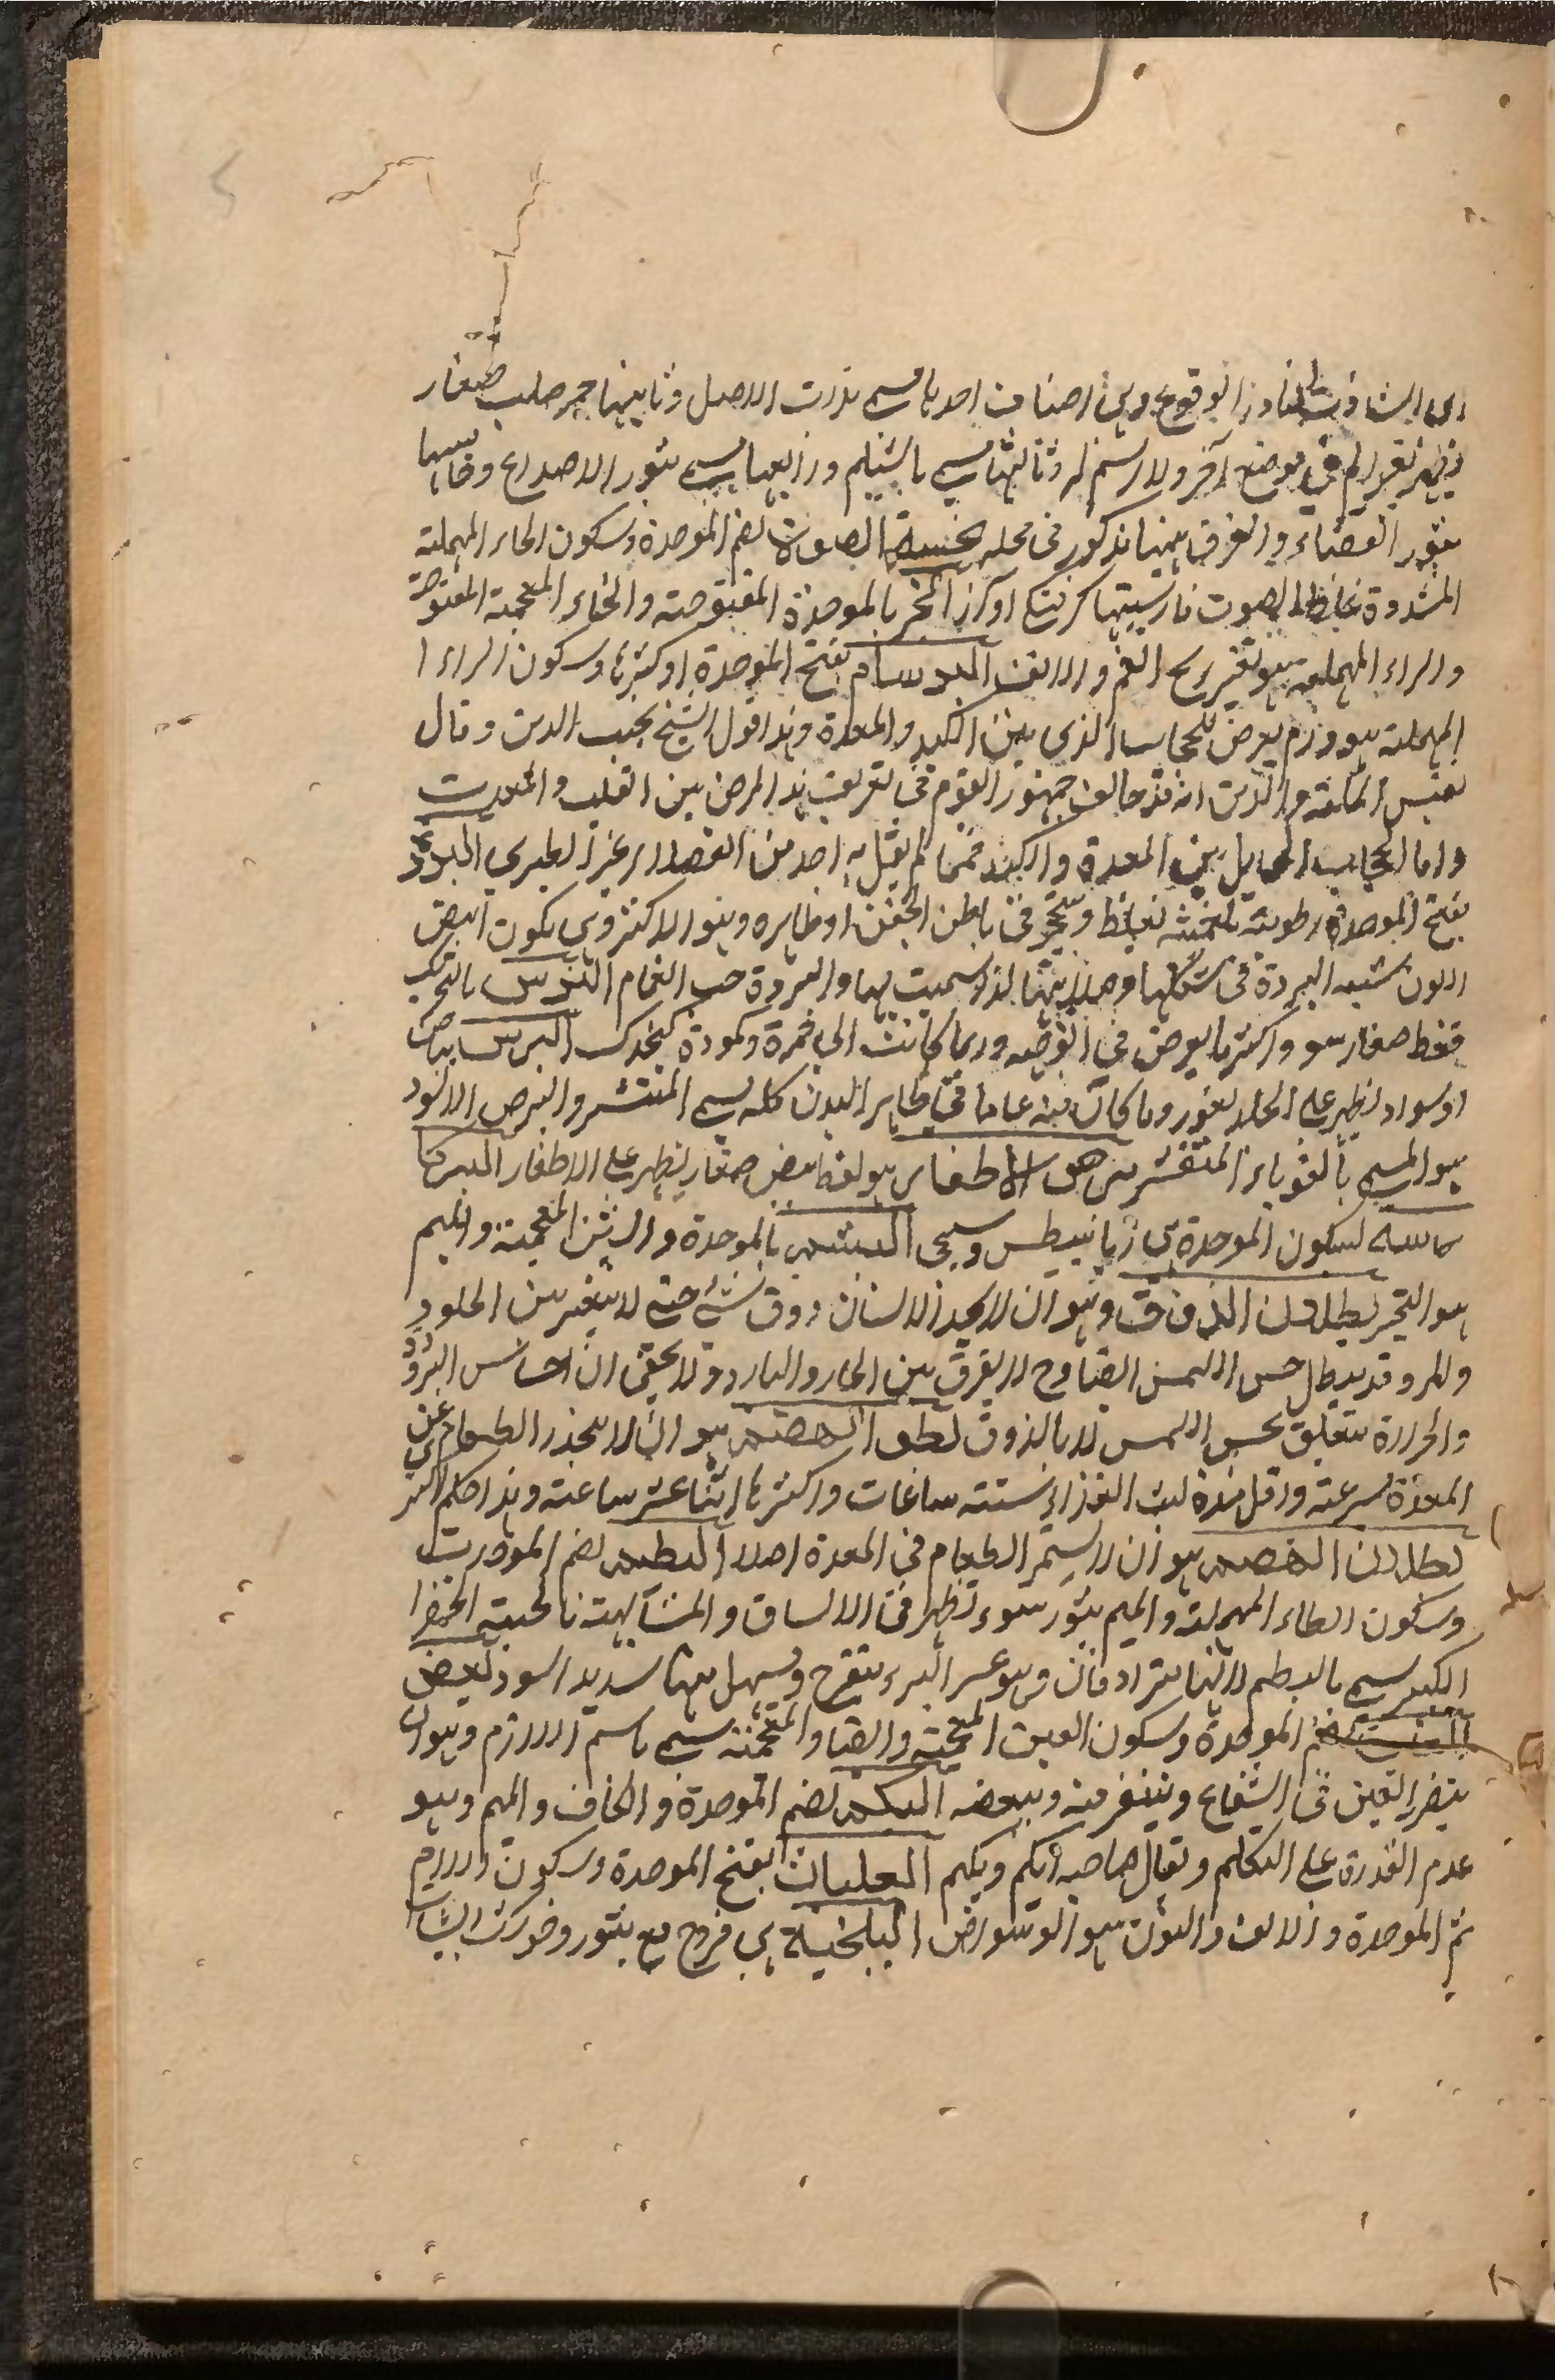 الى الشاذ نادر الوقوع وهى اصناف احدها يسمى بذات الاصل وثانيها حمر صلب صغار
فيظهر تقعر لم فى موضع آخر ولا رسم له وثالثها يسمى بالشيلم ورابعها يسمى بثور الاصداغ وخامسها
بثور القضاء والفرق بينها مذكور فى محله بحة الصوت بضم الموحدة وسكون الحاء المهملة
المشددة غلظ الصوت فارسيتها كرفتگى آواز البخر بالموحدة المفتوحة والخاء المعجمة المفتوحة
والراء المهملة هو تغير ريح الفم والانف البرسام بفتح الموحدة او كسرها وسكون الراء
المهملة هو ورم يعرض للحجاب الذى بين الكبد والمعدة وهذا قول الشيخ نجيب الدين وقال
نفيس الملة والدين انه قد خالف جمهور القوم فى تعريف هذا المرض بين القلب والمعدة
واما الحجاب الحايل بين المعدة والكبد فمما لم يقل به احد من الفضلاء غير الطبرى البرد
بفتح الموحدة رطوبة تغلظ وتتحجر فى باطن الجفن او ظاهره وهو الاكثرى يكون ابيض
اللون شبيه البردة فى شكلها وصلابتها لذا سميت بها والبردة حب الغمام البرش بالتحريك
نقط صغار سود واكثر ما يعرض فى الوجه وربما كانت الى حمرة وكمودة كذلك البرص بياض
او سواد يظهر على الجلد يغور وما كان منه عاما فى ظاهر البدن كله يسمى المنتشر والبرص الاسود
هو المسمى بالقوباء المتقشر برص الاظفار هو نقط بيض صغار يظهر على الاظفار البركا
بسكون الموحدة هى ذيابيطس وسيجى البشم بالموحدة والشين المعجمة والميم
هو التخم بطلان الذوق وهو ان لا يجد الانسان ذوق شئ حتى لا يتميز بين الحلو
والمر وقد يبطل حس اللمس ايضا وح لا يفرق بين الحار والبارد ولا يخفى ان احساس البرودة
والحرارة يتعلق بحس اللمس لا بالذوق بطؤ الهضم هو ان لا ينحدر الطعام عن
المعدة سرعة واقل مدة لبث الغذاء ستة ساعات واكثرها اثنا عشر ساعة وهذا حكم اكثرى
بطلان الهضم هو ان لا يستمر الطعام فى المعدة اصلا البطم بضم الموحدة
وسكون الطاء المهملة والميم بثور سود تظهر فى الساق والمشابهة بالحبة الخضرا
الكبير يسمى بالبطم لانها مترادفان وهو عسر البرء يتقرح ويسيل منها صديد اسود البغض
بضم الموحدة وسكون الغين المعجمة والضاد المعجمة يسمى باسم اللازم وهو ان
يتضرر العين فى الشعاع ويتنفر منه وببعضه البكم بضم الموحدة والكاف والميم وهو
عدم القدرة على التكلم ويقال لصاحبه ابكم وبكم البلبان بفتح الموحدة وسكون اللام
ثم الموحدة والالف والنون هو الوسواس البلخية هى قروح مع بثور وخشكريشات